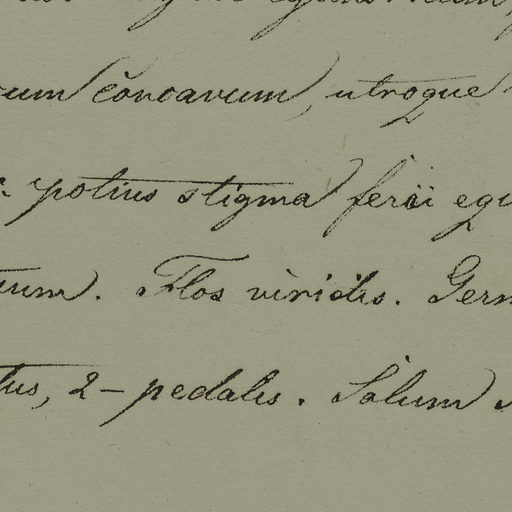 um concavum, utroque
potius stigma ferii
um. Flos viridis. Germ
tus, 2-pedalis. Solum